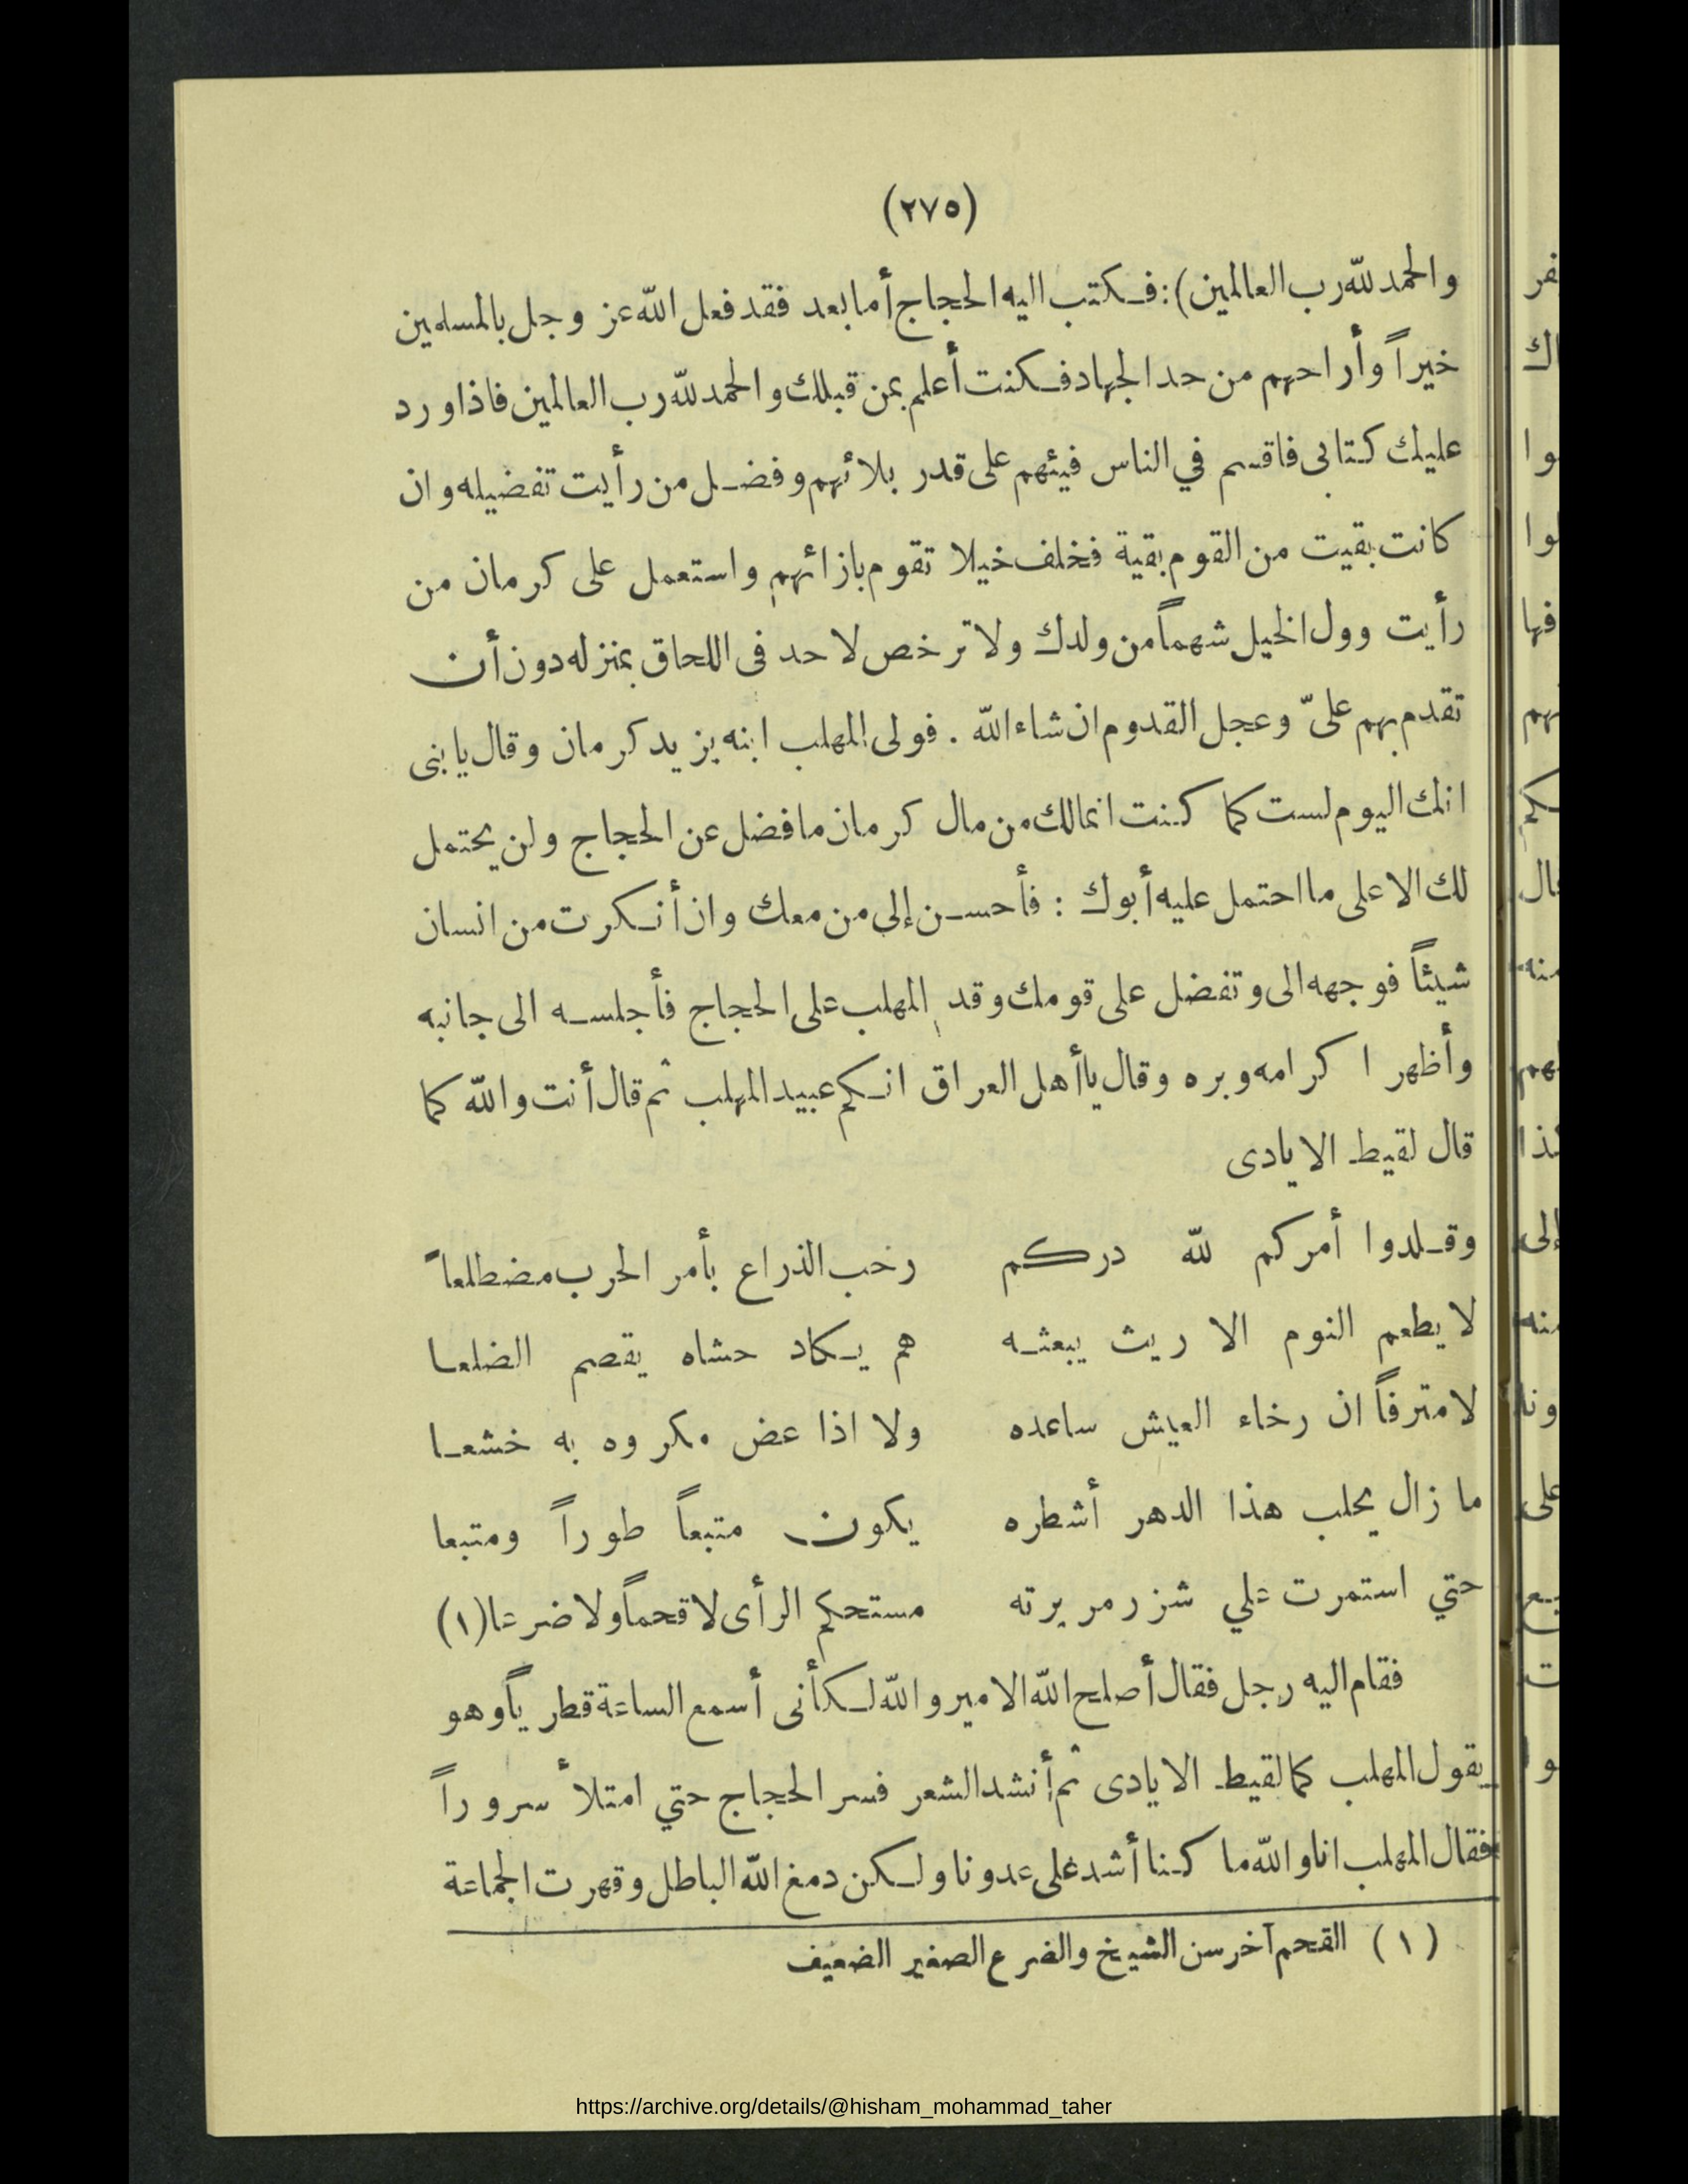 (٢٧٥)
والحمد لله رب العالمين): فكتب اليه الحجاج أما بعد فقد فعل الله عز وجل بالمسلمين
خيراً وأراحهم من حد الجهاد فكنت أعلم بمن قبلك والحمد لله رب العالمين فاذا ورد
عليك كتابى فاقسم في الناس فيئهم على قدر بلائهم وفضل من رأيت تفضيله وان
كانت بقيت من القوم بقية فخلف خيلا تقوم بازائهم واستعمل على كرمان من
رأيت وول الخيل شهماً من ولدك ولا ترخص لاحد فى اللحاق بمنزله دون أن
تقدم بهم علىّ وعجل القدوم ان شاء الله . فولى المهلب ابنه يزيد كرمان وقال يا بنى
انك اليوم لست كما كنت انما لك من مال كرمان ما فضل عن الحجاج ولن يحتمل
لك الا على ما احتمل عليه أبوك : فأحسن إلى من معك وان أنكرت من انسان
شيئاً فوجهه الى وتفضل على قومك وقد المهلب على الحجاج فأجلسه الى جانبه
وأظهر اكرامه وبره وقال يا أهل العراق انكم عبيد المهلب ثم قال أنت والله كما
قال لقيط الايادى
وقلدوا أمركم لله دركم رخب الذراع بأمر الحرب مضطلعاً
لا يطعم النوم الا ريث يبعثه هم يكاد حشاه يقصم الضلعا
لا مترفاً ان رخاء العيش ساعده ولا اذا عض مكروه به خشعا
ما زال يحلب هذا الدهر أشطره يكون متبعاً طوراً ومتبعا
حتي استمرت علي شزر مريرته مستحكم الرأى لا قحماً ولا ضرعا (١)
فقام اليه رجل فقال أصلح الله الامير والله لكأنى أسمع الساعة قطرياً وهو
يقول المهلب كما لقيط الايادى ثم أنشد الشعر فسر الحجاج حتي امتلأ سروراً
فقال المهلب انا والله ما كنا أشد على عدونا ولكن دمغ الله الباطل وقهرت الجماعة
(١) القحم آخر سن الشيخ والضرع الصغير الضعيف
https://archive.org/details/@hisham_mohammad_taher